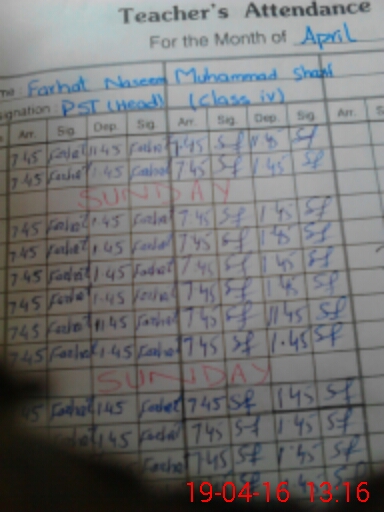 Teacher's Attendance
For the Month of April
Farhat Naseem Muhammad Sharif
signation: PST (Head) (Class iv)
Arr. Sig. Dep. Sig. Arr. Sig. Dep. Sig. Arr.
7.45 Farhat 11.45 Farhat 7.45 Sf 11.45 Sf
7.45 Farhat 1.45 Farhat 7.45 Sf 1.45 Sf
SUNDAY
7.45 Farhat 1.45 Farhat 7.45 Sf 1.45 Sf
7.45 Farhat 1.45 Farhat 7.45 Sf 1.45 Sf
7.45 Farhat 1.45 Farhat 7.45 Sf 1.45 Sf
7.45 Farhat 1.45 Farhat 7.45 Sf 1.45 Sf
7.45 Farhat 11.45 Farhat 7.45 Sf 11.45 Sf
7.45 Farhat 1.45 Farhat 7.45 Sf 1.45 Sf
SUNDAY
45 Farhat 1.45 Farhat 7.45 Sf 1.45 Sf
Farhat 1.45 Farhat 7.45 Sf 1.45 Sf
1.45 Farhat 7.45 Sf 1.45 Sf
19-04-16 13:16